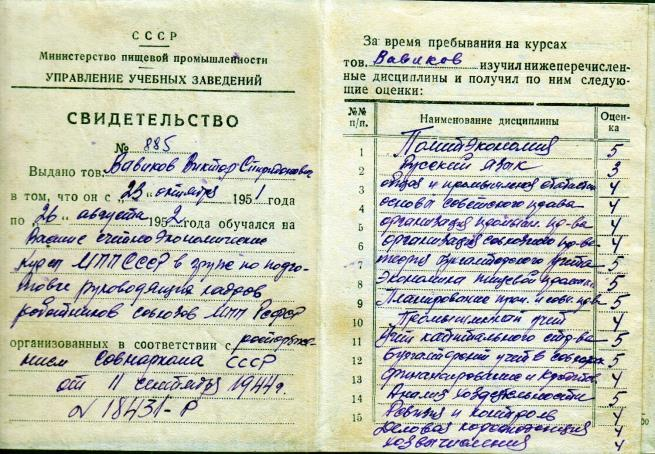 СССР
Министерство пищевой промышленности
УПРАВЛЕНИЕ УЧЕБНЫХ ЗАВЕДЕНИЙ
СВИДЕТЕЛЬСТВО
№ 885
Выдано тов. Вавиков Виктор
в том, что он с „23" октября 1951 года
по „26" августа 1952 года обучался на
Высшие учётно-экономические
курсы МПП СССР в группе по подго-
товке руководящих кадров
работников совхозов МПП РСФСР
организованных в соответствии с распоряже-
нием Совнаркома СССР
от 11 сентября 1944г.
№ 18431-Р
За время пребывания на курсах
тов. Вавиков изучил нижеперечислен-
ные дисциплины и получил по ним следую-
щие оценки:
№№ п/п. Наименование дисциплины Оценка
1 Политэкономия 5
2 Русский язык 3
3 общая и промышленная 4
4 основы советского права 4
5 организация пр-ва 4
6 организация совхозного пр-ва 4
7 теория бухгалтерского учёта 5
8 Экономика пищевой 5
9 Планирование пром. и совх. пр-ва 5
10 Промышленный учёт 4
11 Учёт капитального стр-ва 5
12 Бухгалтерский учёт в совхозах 5
13 финансирование и кредитов. 4
14 Анализ хоздеятельности 5
15 Ревизия и контроль 4
Деловая корреспонденция 4
хозвычисления 4